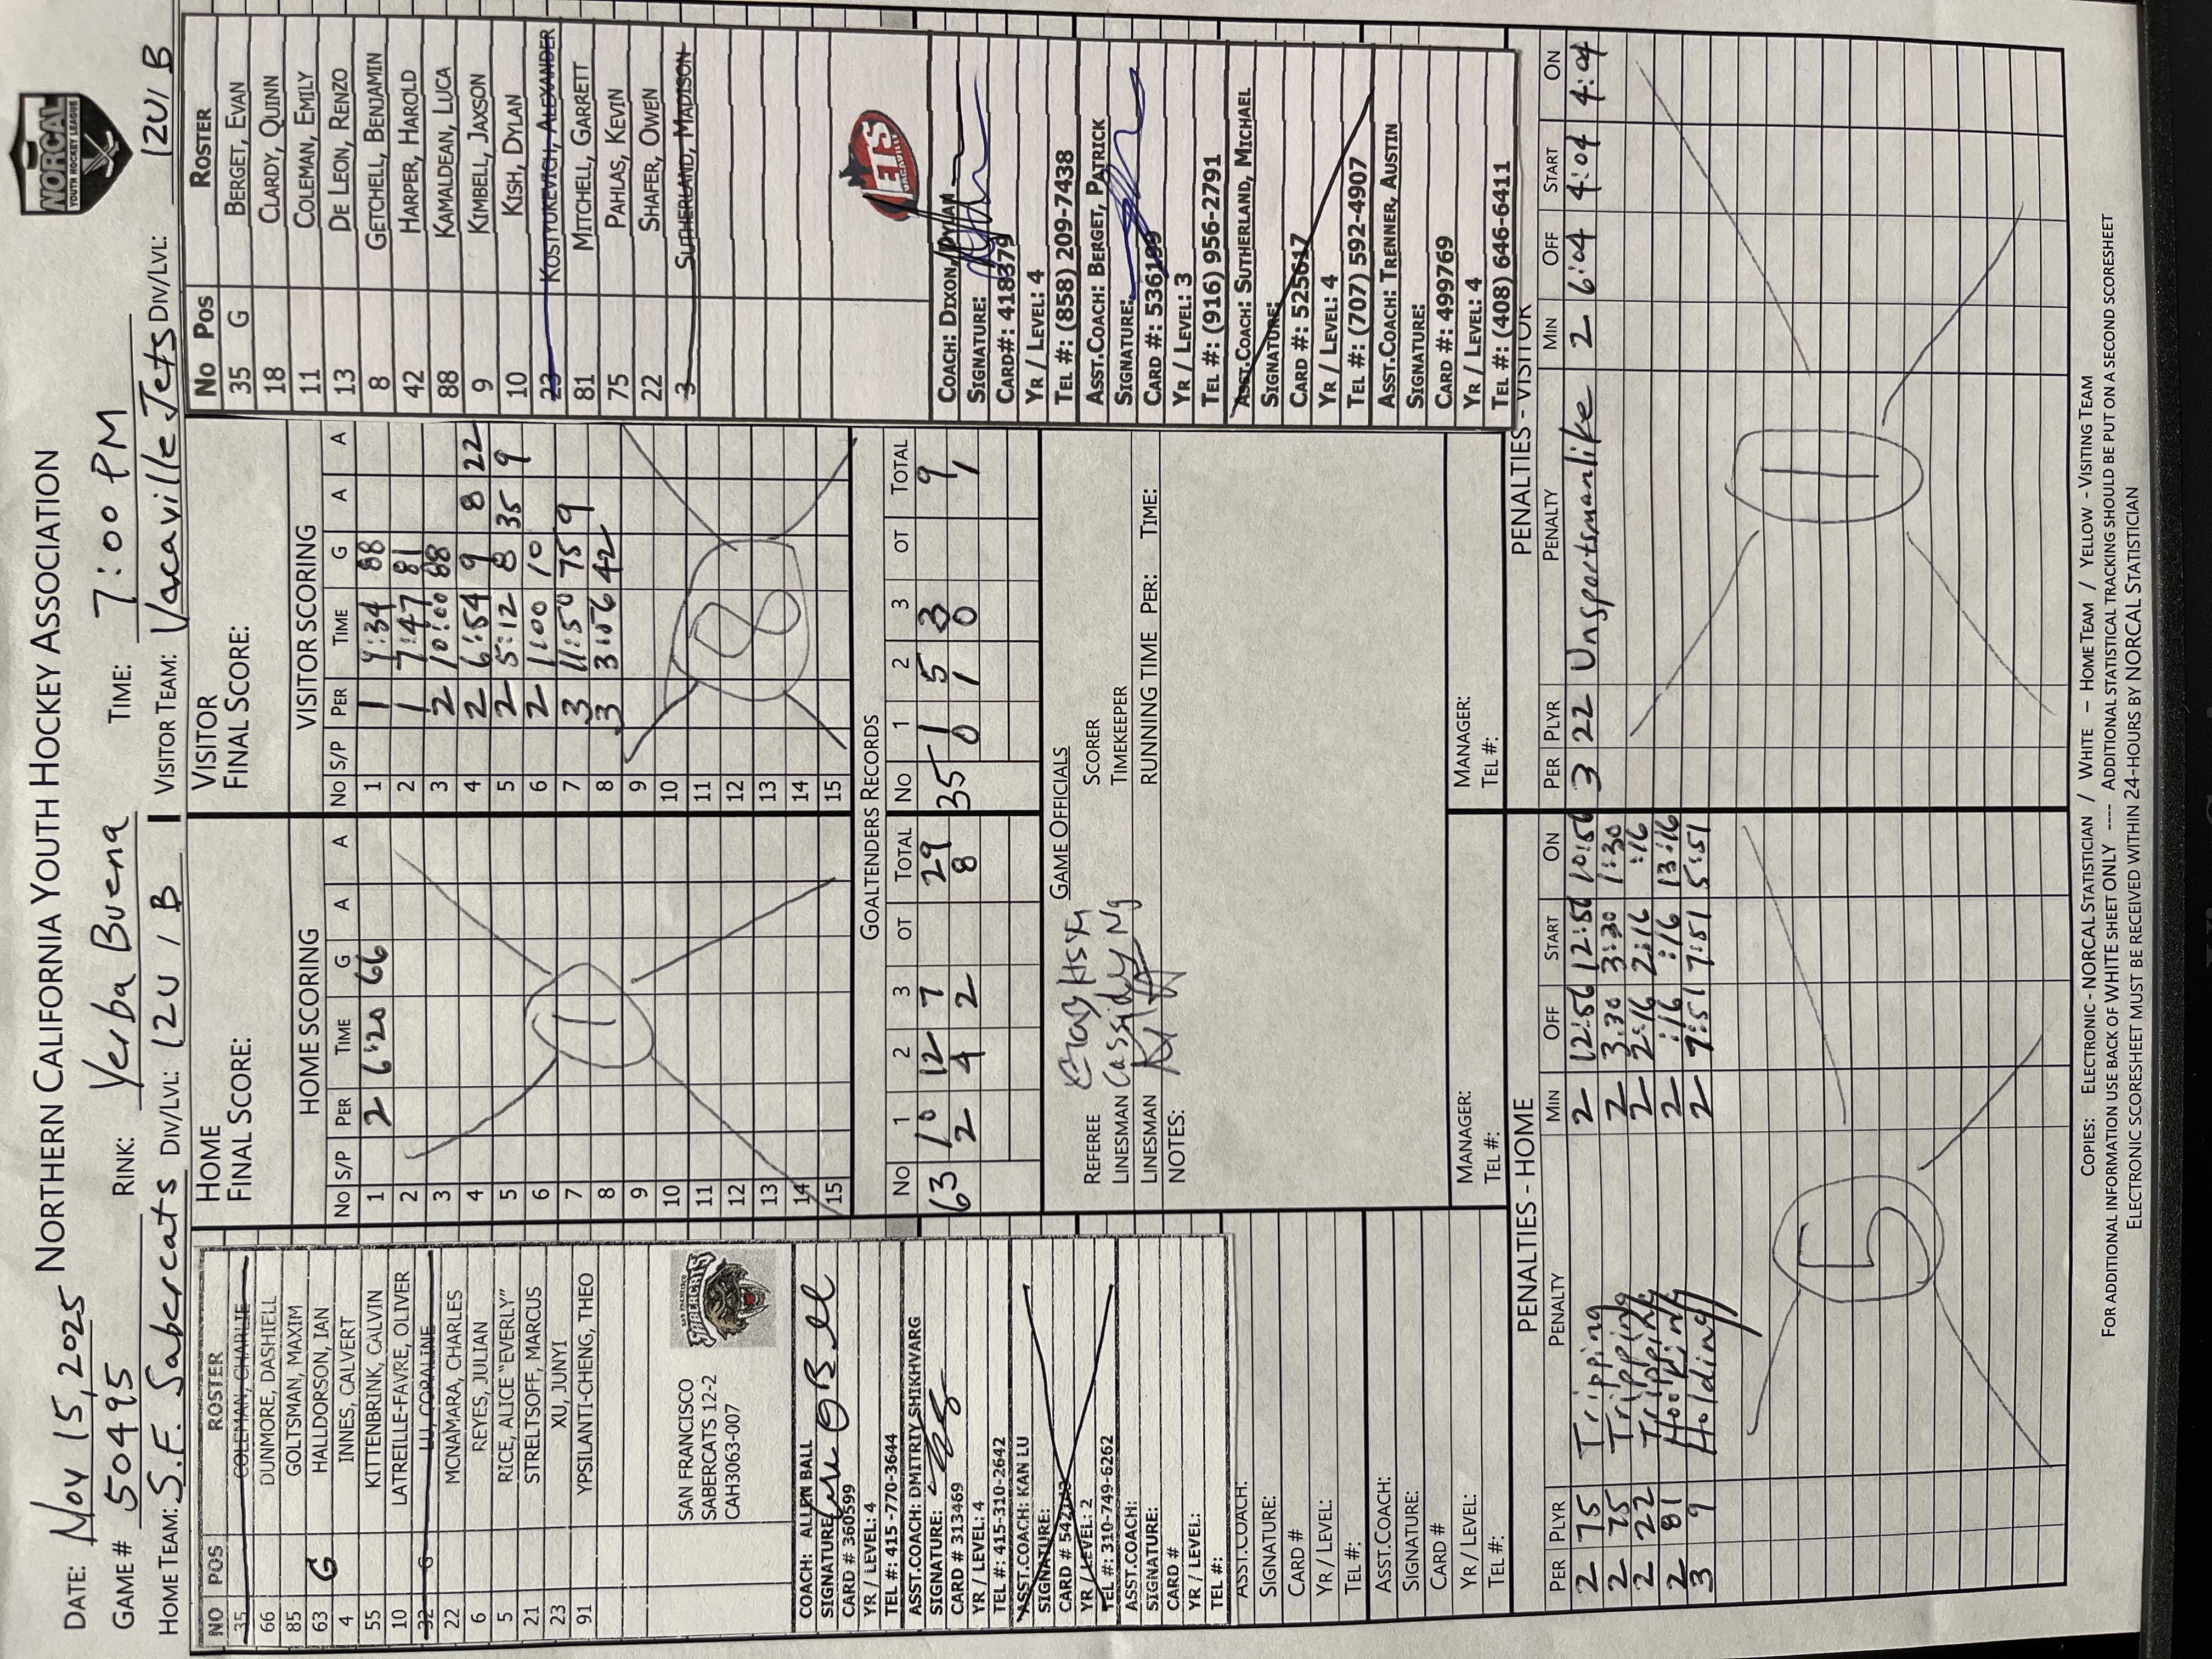 NORTHERN CALIFORNIA YOUTH HOCKEY ASSOCIATION
NORCAL
YOUTH HOCKEY LEAGUE
DATE: Nov 15, 2025
GAME # 50495 RINK: Yerba Buena TIME: 7:00 PM
HOME TEAM: S.F. Sabercats DIV/LVL: 12U / B VISITOR TEAM: Vacaville Jets DIV/LVL: 12U / B
NO POS ROSTER
35 COLEMAN, CHARLIE
66 DUNMORE, DASHIELL
85 GOLTSMAN, MAXIM
63 G HALLDORSON, IAN
4 INNES, CALVERT
55 KITTENBRINK, CALVIN
10 LATREILLE-FAVRE, OLIVER
32 G LU, CORALINE
22 MCNAMARA, CHARLES
6 REYES, JULIAN
5 RICE, ALICE "EVERLY"
21 STRELTSOFF, MARCUS
23 XU, JUNYI
91 YPSILANTI-CHENG, THEO
SAN FRANCISCO
SABERCATS 12-2
CAH3063-007
SAN FRANCISCO
SABERCATS
COACH: ALLEN BALL
SIGNATURE
CARD # 360599
YR / LEVEL: 4
TEL #: 415-770-3644
ASST.COACH: DMITRIY SHIKHVARG
SIGNATURE:
CARD # 313469
YR / LEVEL: 4
TEL #: 415-310-2642
ASST.COACH: KAN LU
SIGNATURE:
CARD #
YR / LEVEL: 2
TEL #: 310-749-6262
ASST.COACH:
SIGNATURE:
CARD #
YR / LEVEL:
TEL #:
ASST.COACH:
SIGNATURE:
CARD #
YR / LEVEL:
TEL #:
ASST.COACH:
SIGNATURE:
CARD #
YR / LEVEL:
TEL #:
HOME
FINAL SCORE:
HOME SCORING
NO S/P PER TIME G A A
1 2 6:20 66
2
3
4
5
6
7
8
9
10
11
12
13
14
15
1
VISITOR
FINAL SCORE:
VISITOR SCORING
NO S/P PER TIME G A A
1 1 9:34 88
2 1 7:47 81
3 2 10:00 88
4 2 6:54 9 8 22
5 2 5:12 8 35 9
6 2 1:00 10
7 3 11:50 75 9
8 3 3:56 42
9
10
11
12
13
14
15
8
GOALTENDERS RECORDS
NO 1 2 3 OT TOTAL NO 1 2 3 OT TOTAL
63 10 12 7 29 35 1 5 3 9
2 4 2 8 0 1 0 1
GAME OFFICIALS
REFEREE SCORER
LINESMAN Cassidy Ng TIMEKEEPER
LINESMAN RUNNING TIME PER: TIME:
NOTES:
MANAGER:
TEL #:
MANAGER:
TEL #:
NO POS ROSTER
35 G BERGET, EVAN
18 CLARDY, QUINN
11 COLEMAN, EMILY
13 DE LEON, RENZO
8 GETCHELL, BENJAMIN
42 HARPER, HAROLD
88 KAMALDEAN, LUCA
9 KIMBELL, JAXSON
10 KISH, DYLAN
23 KOSTYUKEVICH, ALEXANDER
81 MITCHELL, GARRETT
75 PAHLAS, KEVIN
22 SHAFER, OWEN
3 SUTHERLAND, MADISON
JETS
VACAVILLE
COACH: DIXON, DYLAN
SIGNATURE:
CARD#: 418379
YR / LEVEL: 4
TEL #: (858) 209-7438
ASST.COACH: BERGET, PATRICK
SIGNATURE:
CARD #: 536199
YR / LEVEL: 3
TEL #: (916) 956-2791
ASST.COACH: SUTHERLAND, MICHAEL
SIGNATURE:
CARD #: 525617
YR / LEVEL: 4
TEL #: (707) 592-4907
ASST.COACH: TRENNER, AUSTIN
SIGNATURE:
CARD #: 499769
YR / LEVEL: 4
TEL #: (408) 646-6411
PENALTIES - HOME
PER PLYR PENALTY MIN OFF START ON
2 75 Tripping 2 12:56 12:56 10:56
2 75 Tripping 2 3:30 3:30 1:30
2 22 Tripping 2 2:16 2:16 :16
2 81 Hooking 2 :16 :16 13:16
3 9 Holding 2 7:51 7:51 5:51
5
PENALTIES - VISITOR
PER PLYR PENALTY MIN OFF START ON
3 22 Unsportsmanlike 2 6:04 4:04 4:04
1
COPIES: ELECTRONIC - NORCAL STATISTICIAN / WHITE - HOME TEAM / YELLOW - VISITING TEAM
FOR ADDITIONAL INFORMATION USE BACK OF WHITE SHEET ONLY ---- ADDITIONAL STATISTICAL TRACKING SHOULD BE PUT ON A SECOND SCORESHEET
ELECTRONIC SCORESHEET MUST BE RECEIVED WITHIN 24-HOURS BY NORCAL STATISTICIAN